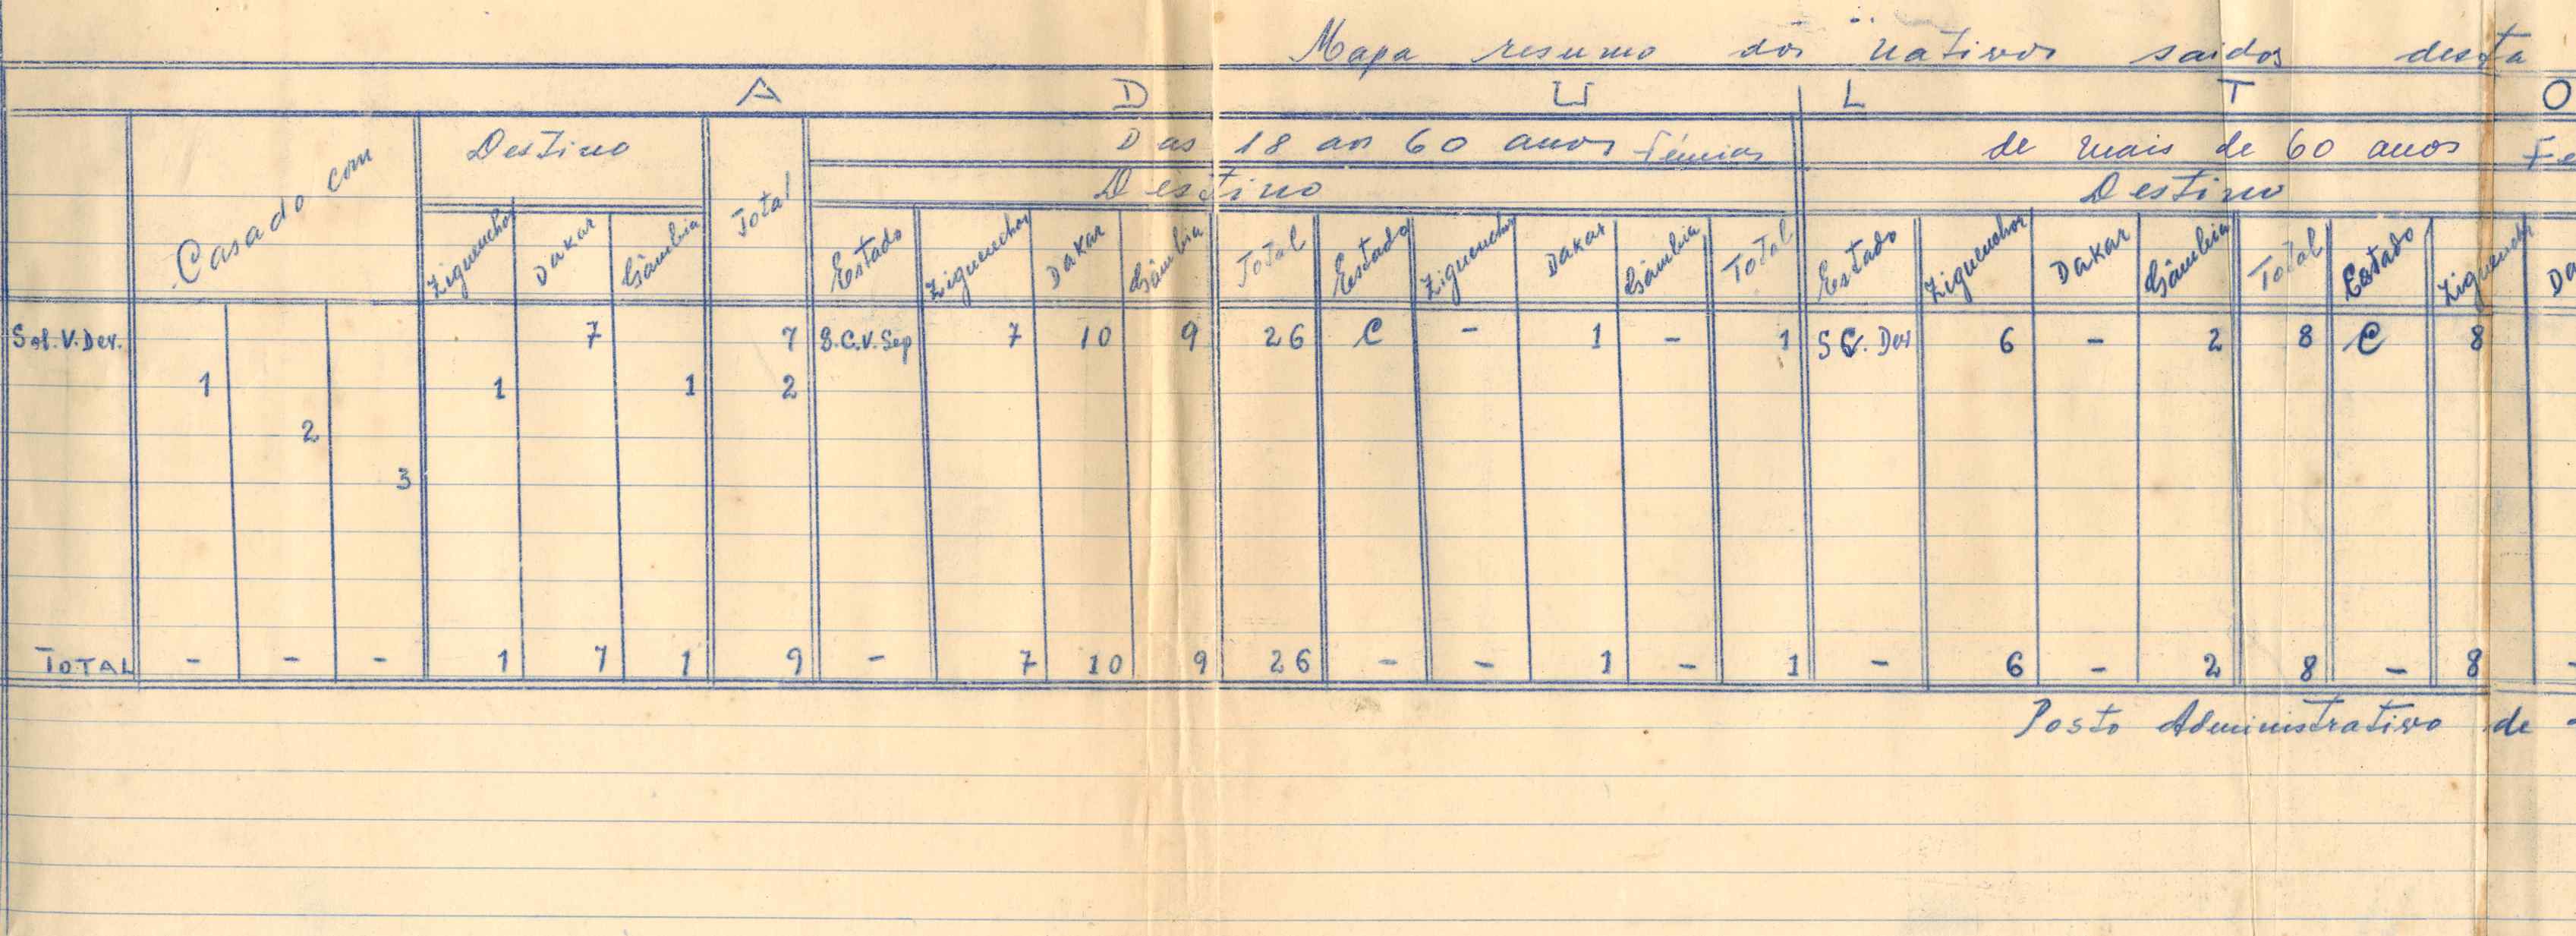 Mapa resumo dos nativos saidos desta
A D U L T O
Casado com Destino Total Das 18 aos 60 anos Fémias de mais de 60 anos Fe
Destino Destino
Ziguenchor Dakar Gâmbia Estado Ziguenchor Dakar Gâmbia Total Estado Ziguenchor Dakar Gâmbia Total Estado Ziguenchor Dakar Gâmbia Total Estado Ziguenchor Da
Sol. V. Dev. 7 7 S.C.V. Sep 7 10 9 26 C - 1 - 1 S C. Dev 6 - 2 8 C 8
1 1 1 2
2
3
TOTAL - - - 1 7 1 9 - 7 10 9 26 - - 1 - 1 - 6 - 2 8 - 8 -
Posto Administrativo de